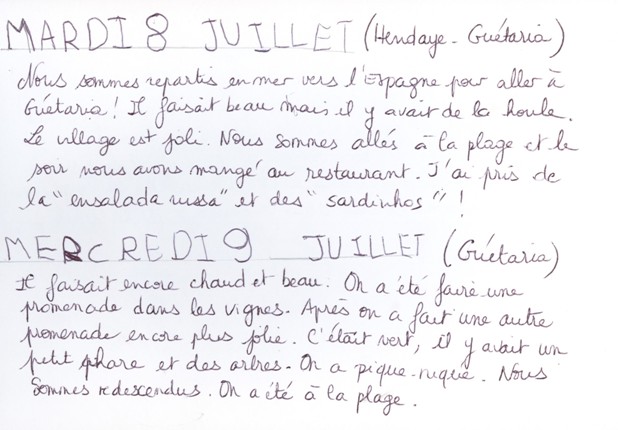 MARDI 8 JUILLET (Hendaye - Guétaria)
Nous sommes repartis en mer vers l'Espagne pour aller à
Guétaria! Il faisait beau mais il y avait de la houle.
Le village est joli. Nous sommes allés à la plage et le
soir nous avons mangé au restaurant. J'ai pris de
la "ensalada russa" et des "sardinhos"!
MERCREDI 9 JUILLET (Guétaria)
Il faisait encore chaud et beau. On a été faire une
promenade dans les vignes. Après on a fait une autre
promenade encore plus jolie. C'était vert, il y avait un
petit phare et des arbres. On a pique-niqué. Nous
sommes redescendus. On a été à la plage.